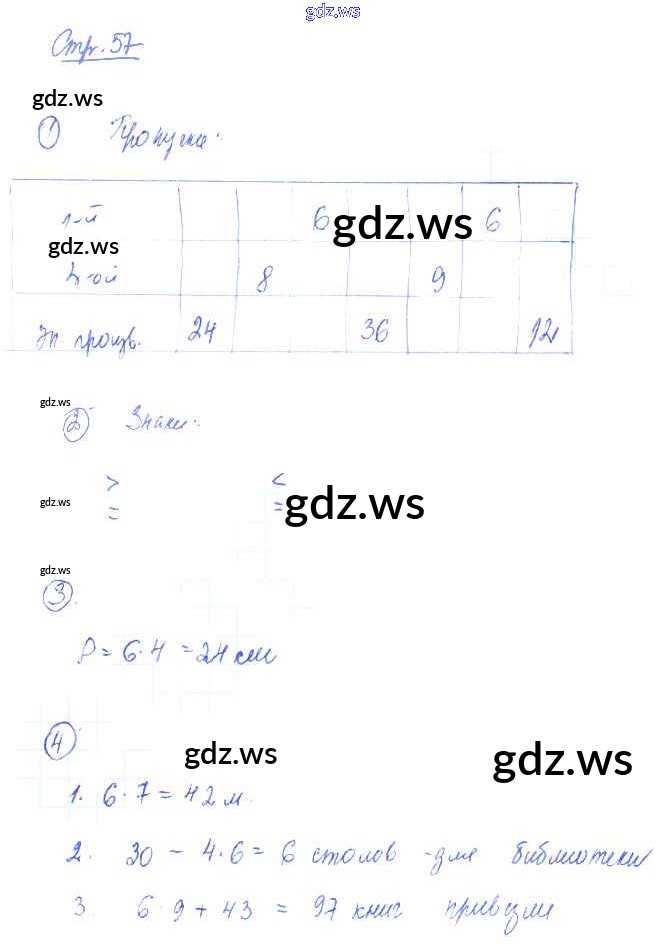 gdz.ws
Стр. 57
gdz.ws
1 Пропуски:
1-й 6 gdz.ws 6
gdz.ws
2-ой 8 9
Зн. произв. 24 36 12
gdz.ws
2 Знаки:
> <
gdz.ws = = gdz.ws
gdz.ws
3
P = 6·4 = 24 см
4 gdz.ws gdz.ws
1. 6·7 = 42 м.
2. 30 - 4·6 = 6 столов - для библиотеки
3. 6·9 + 43 = 97 книг привезли